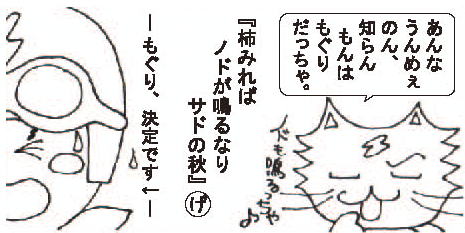 あんな
うんめぇ
のん、
知らん
もんは
もぐり
だっちゃ。
ノドも鳴るっちゃ♪
『柿みれば
ノドが鳴るなり
サドの秋』げ
―もぐり、決定です↑―